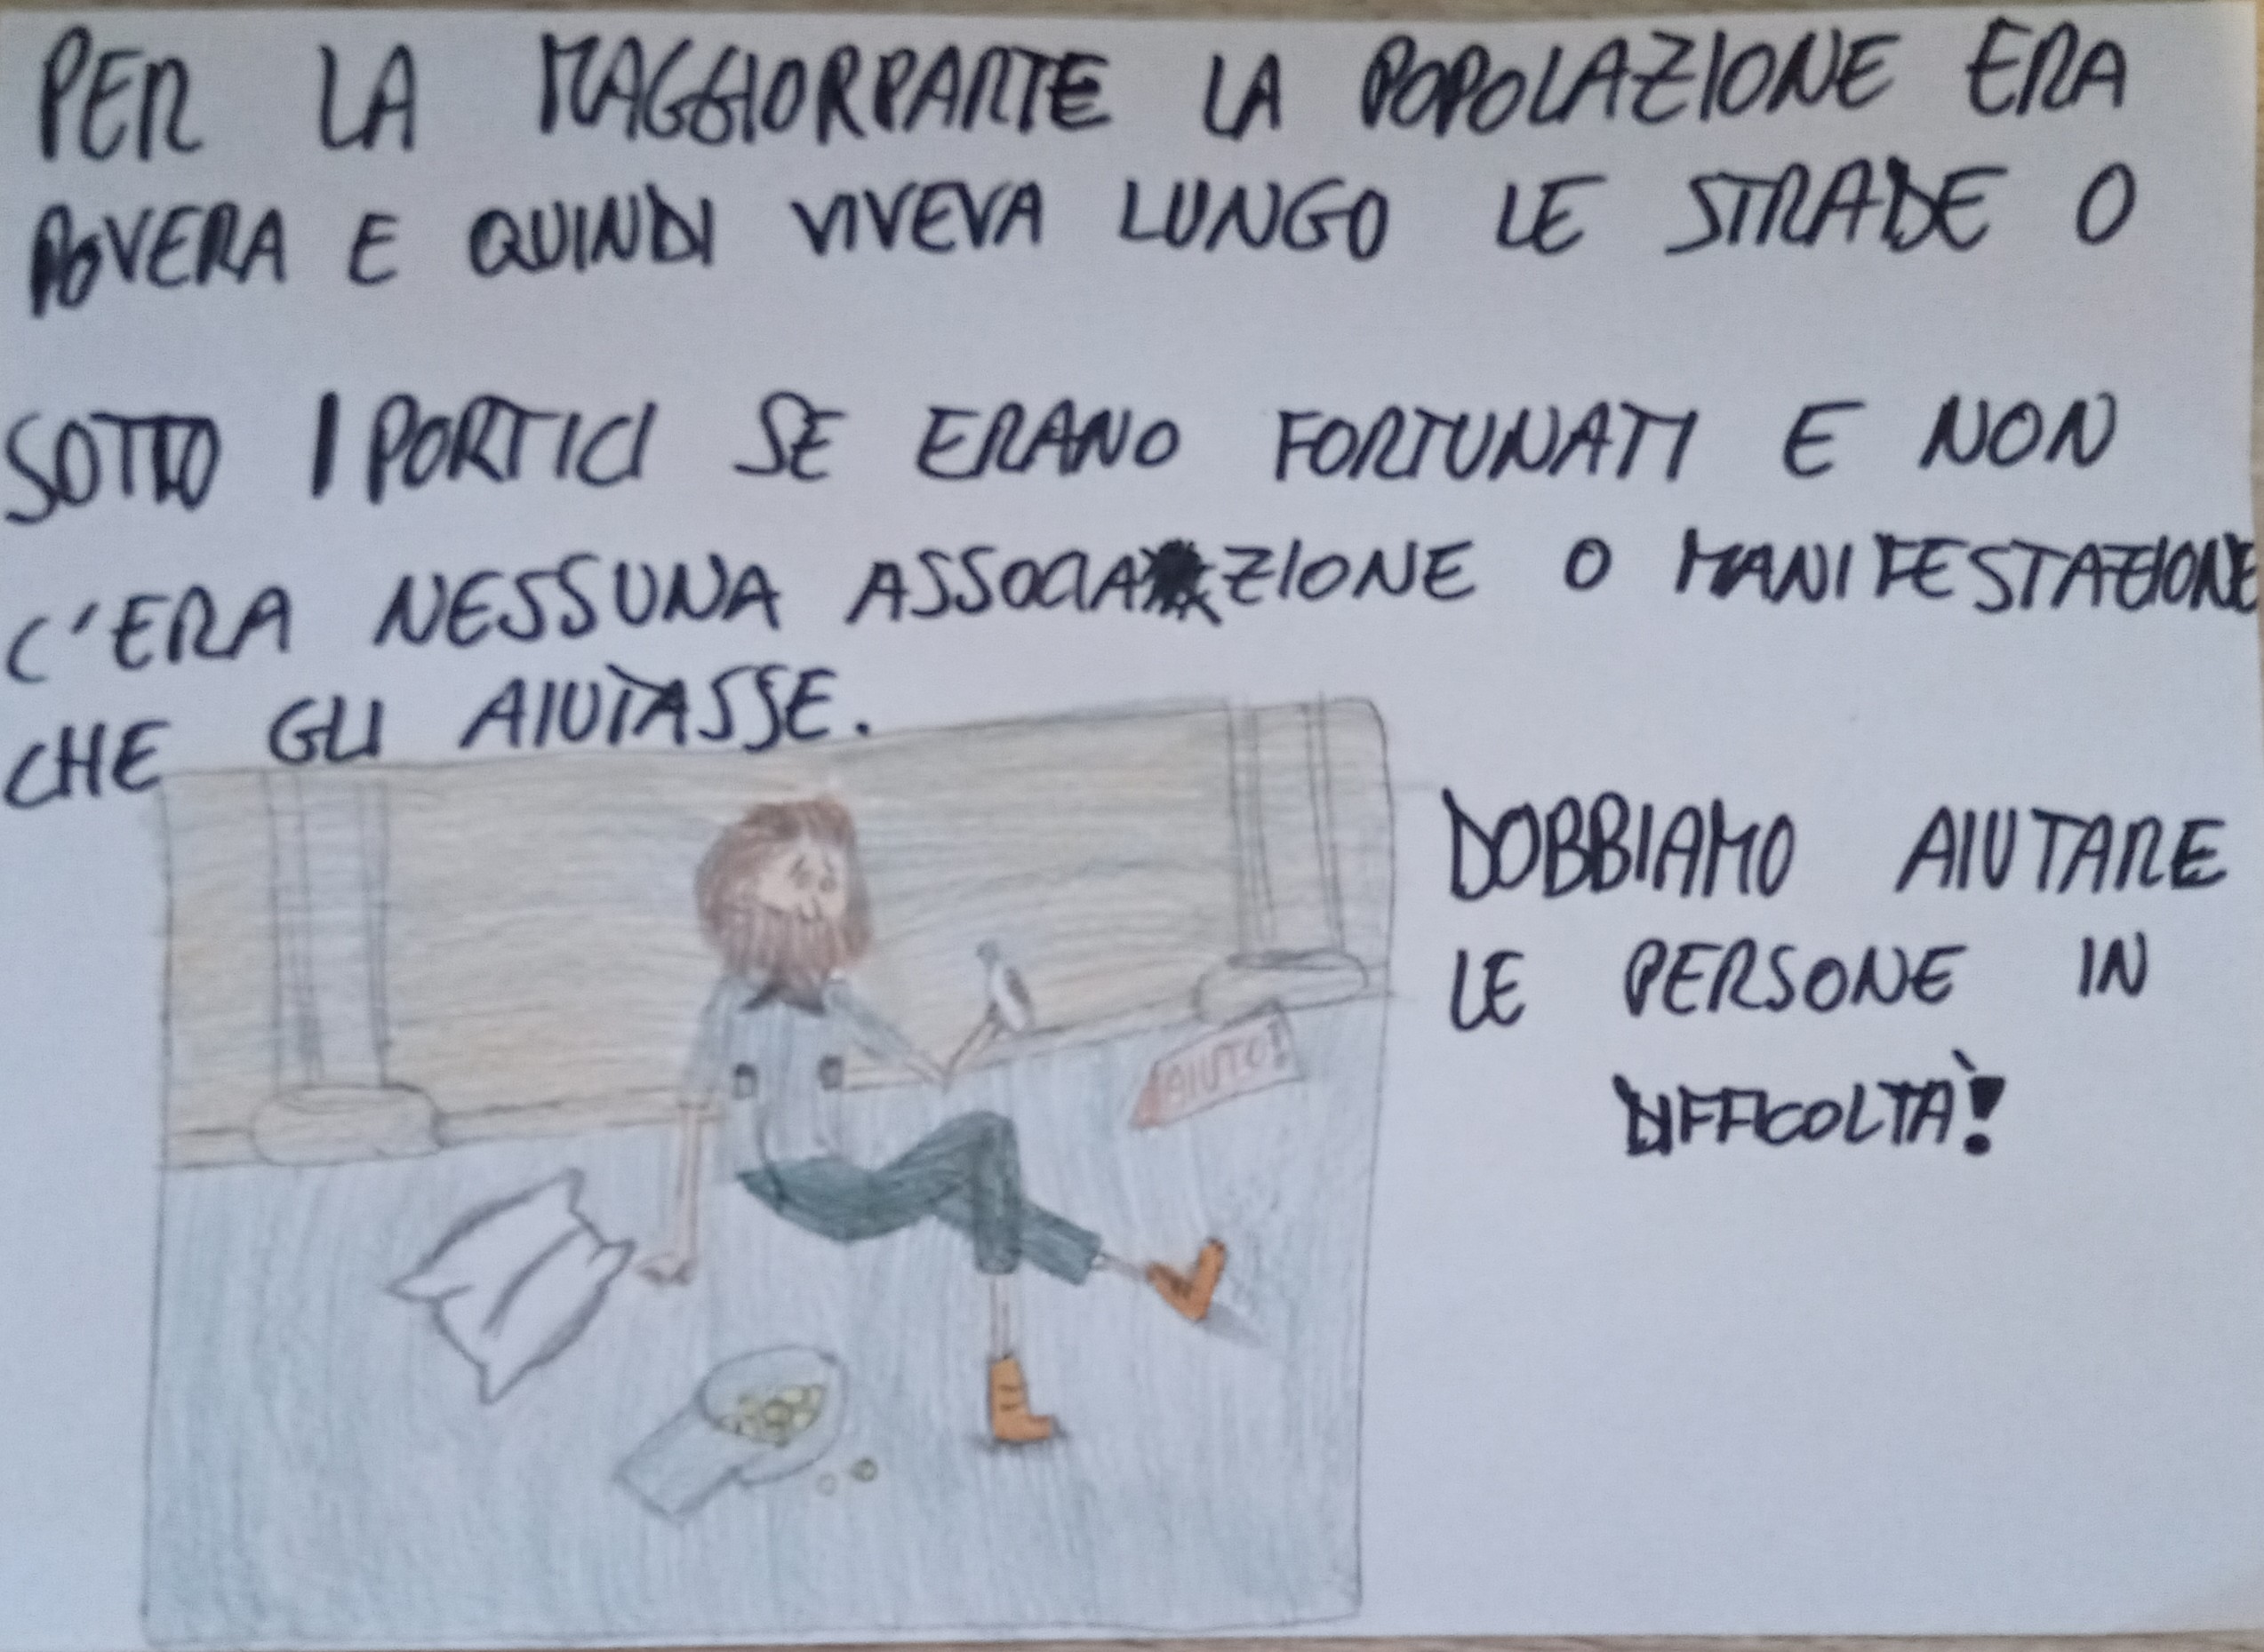 PER LA MAGGIORPARTE LA POPOLAZIONE ERA
POVERA E QUINDI VIVEVA LUNGO LE STRADE O
SOTTO I PORTICI SE ERANO FORTUNATI E NON
C'ERA NESSUNA ASSOCIAZIONE O MANIFESTAZIONE
CHE GLI AIUTASSE.
DOBBIAMO AIUTARE
LE PERSONE IN
DIFFICOLTÀ!
AIUTO!